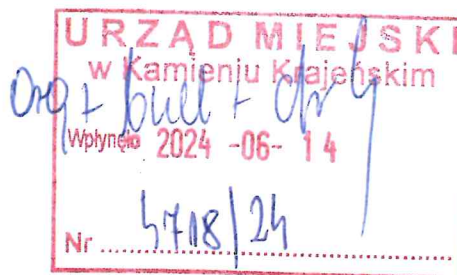 URZĄD MIEJSKI
w Kamieniu Krajeńskim
Org +
Wpłynęło 2024 -06- 14
Nr 4718/24